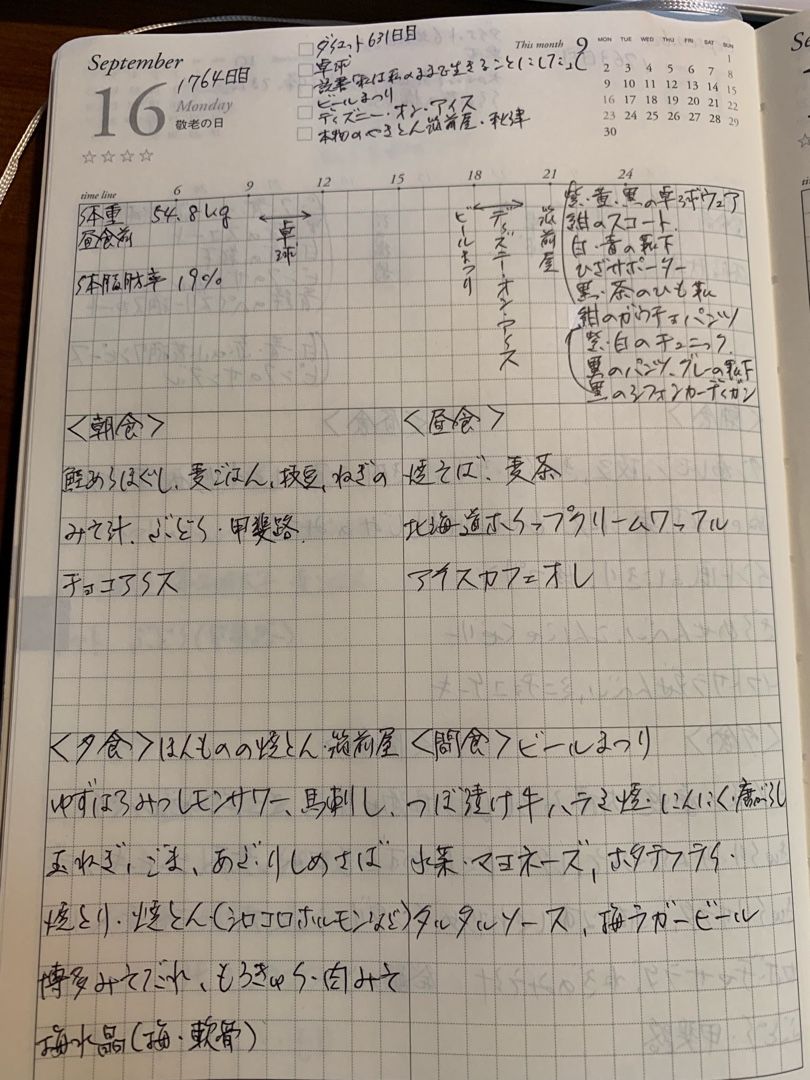 September
16
1764日目
Monday
敬老の日
☆☆☆☆
ダイエット631日目
卓球
読書「私は私のままで生きることにした」
ビールまつり
ディズニー・オン・アイス
本物のやきとん 筑前屋・秋津
This month 9
MON TUE WED THU FRI SAT SUN
1
2 3 4 5 6 7 8
9 10 11 12 13 14 15
16 17 18 19 20 21 22
23 24 25 26 27 28 29
30
time line 6 9 12 15 18 21 24
体重 54.8kg
昼食前
体脂肪率 19%
卓球
ビールまつり
ディズニー・オン・アイス
筑前屋
紫・黄・黒の卓球ウェア
紺のスコート
白・青の靴下
ひざサポーター
黒・茶のひも靴
紺のガウチョパンツ
紫・白のチュニック
黒のパンツ、グレーの靴下
黒のシフォンカーディガン
<朝食>
鮭あらほぐし、麦ごはん、枝豆、ねぎの
みそ汁、ぶどう・甲斐路
チョコアイス
<昼食>
焼そば、麦茶
北海道ホイップクリームワッフル
アイスカフェオレ
<夕食>ほんものの焼とん・筑前屋
ゆずはちみつレモンサワー、馬刺し、
玉ねぎ、ごま、あぶりしめさば
焼とり・焼とん(シロコロホルモンなど)
博多みそだれ、もろきゅう・肉みそ
梅水晶(梅・軟骨)
<間食>ビールまつり
つぼ漬け牛ハラミ焼・にんにく・唐がらし
水菜・マヨネーズ、ホタテフライ・
タルタルソース、梅ラガービール